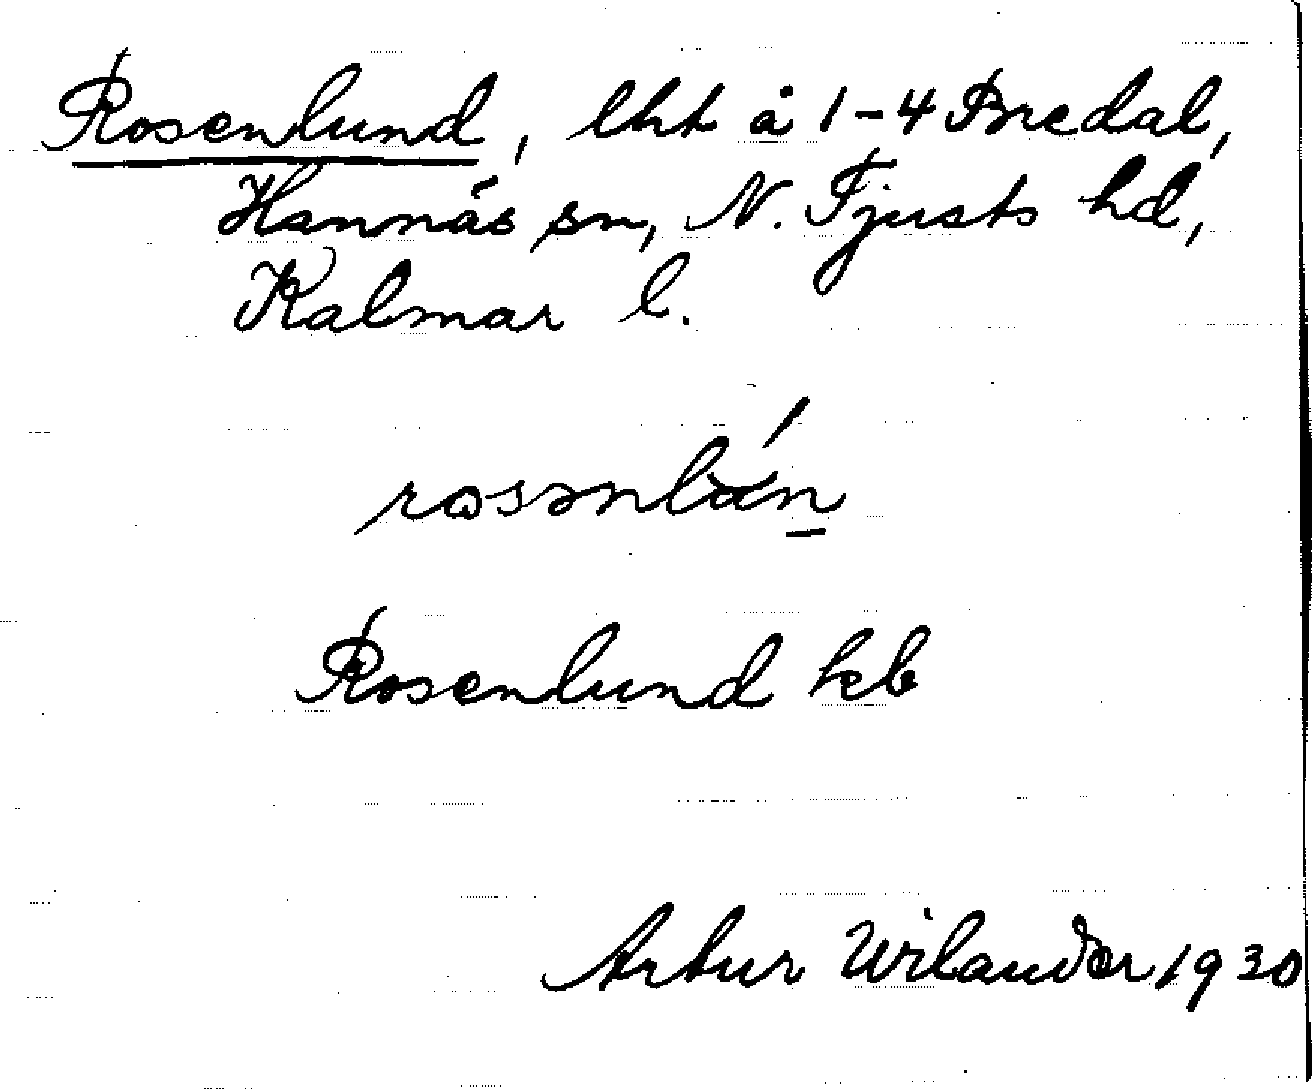 Rosenlund, lht å 1-4 Bredal,
Hannäs sn, N. Tjusts hd,
Kalmar l.
Rosenlund kb
Artur Wilander 1930